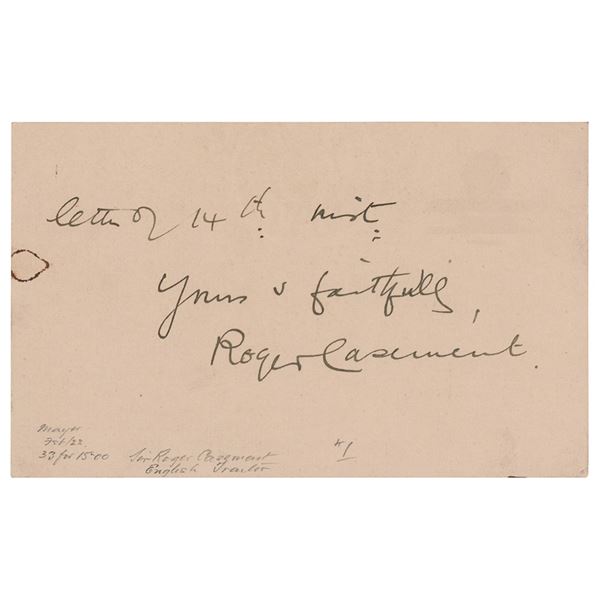 letter of 14th inst.
Yours v faithfully,
Roger Casement.
Mayer
Feb/22
33 for 15.00
Sir Roger Casement
English Traitor
#1